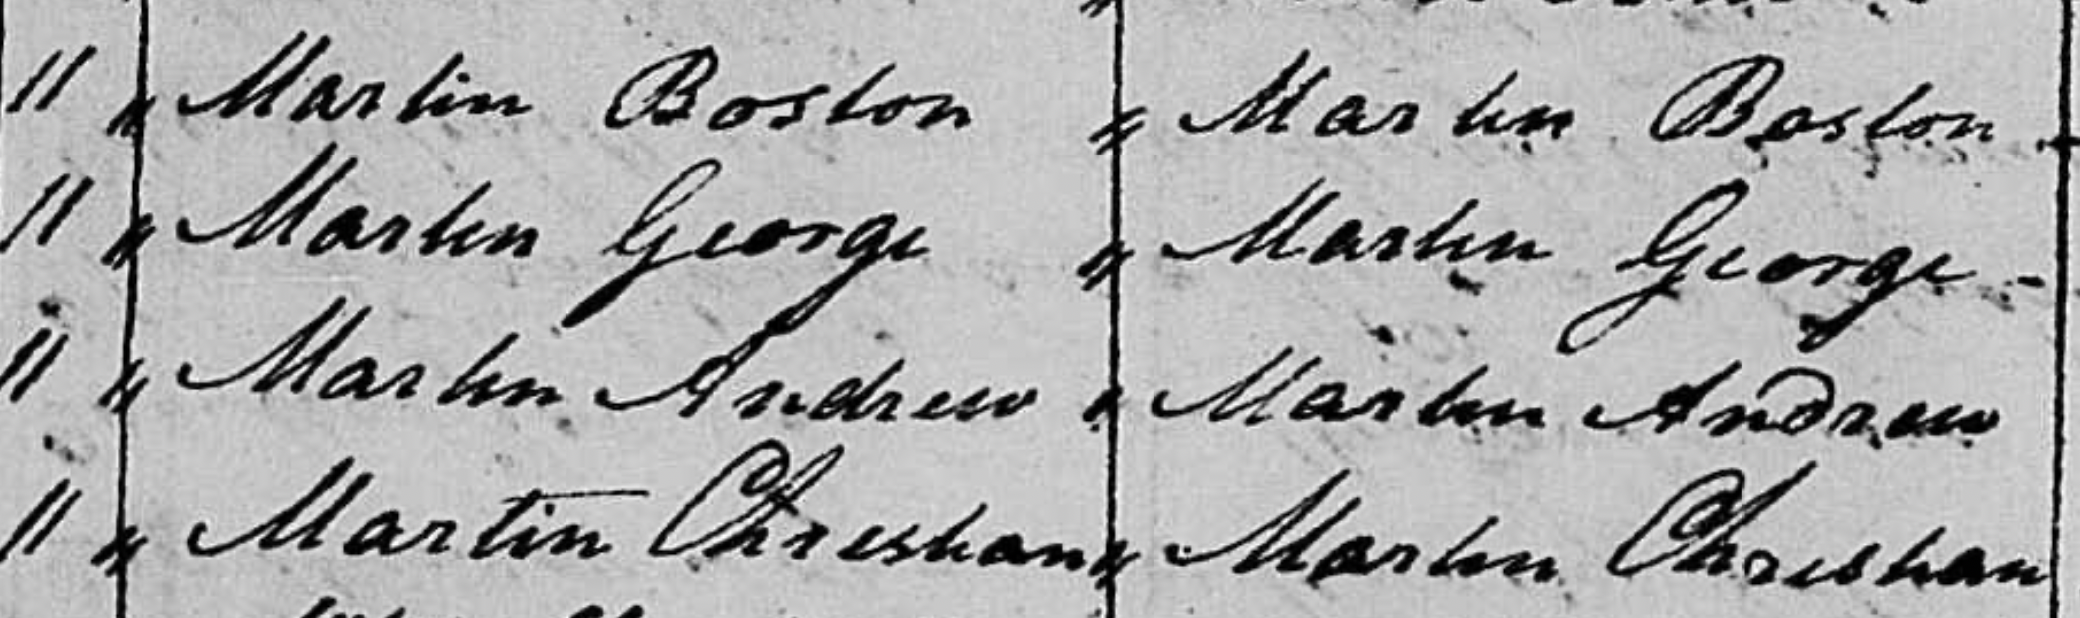 " " Martin Boston " Martin Boston -
" " Martin George " Martin George -
" " Martin Andrew " Martin Andrew
" " Martin Christian " Martin Christian